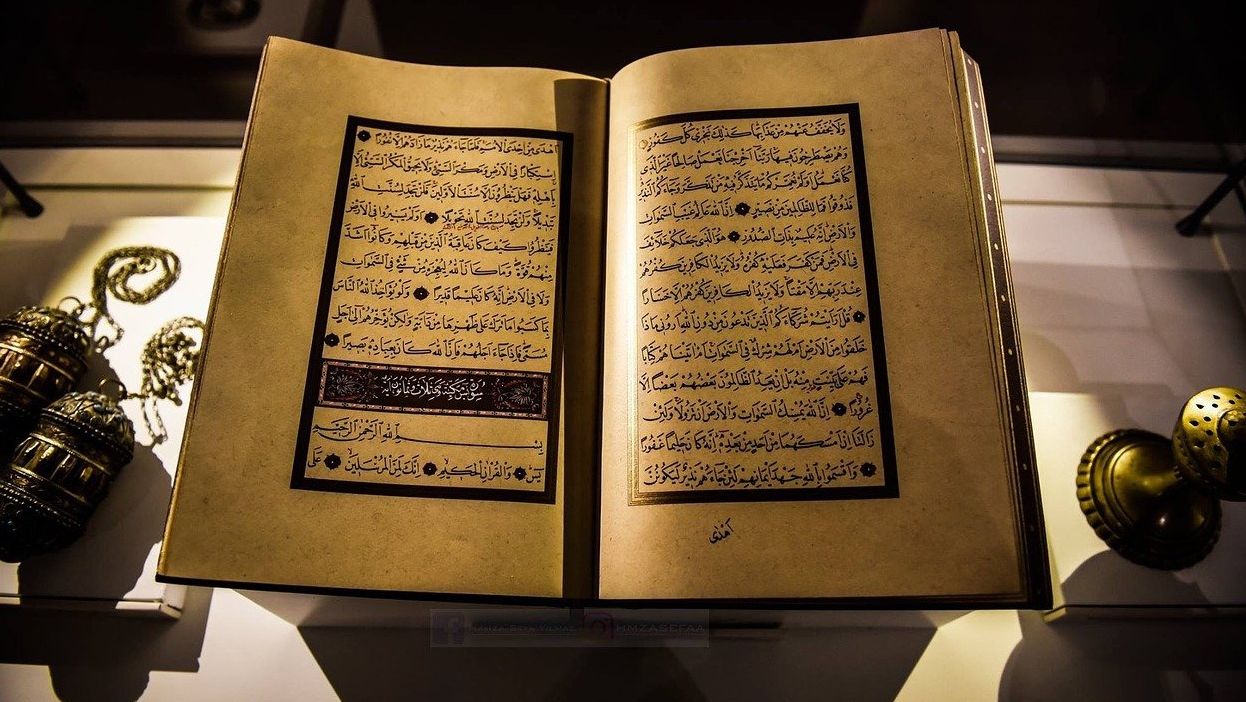 وَلَا يُخَفَّفُ عَنْهُمْ مِنْ عَذَابِهَا كَذٰلِكَ نَجْزِى كُلَّ كَفُورٍ
وَهُمْ يَصْطَرِخُونَ فِيهَا رَبَّنَا أَخْرِجْنَا نَعْمَلْ صَالِحًا غَيْرَ الَّذِى
كُنَّا نَعْمَلُ أَوَلَمْ نُعَمِّرْكُمْ مَا يَتَذَكَّرُ فِيهِ مَنْ تَذَكَّرَ وَجَاءَكُمُ النَّذِيرُ
فَذُوقُوا فَمَا لِلظَّالِمِينَ مِنْ نَصِيرٍ إِنَّ اللّٰهَ عَالِمُ غَيْبِ السَّمٰوَاتِ
وَالْأَرْضِ إِنَّهُ عَلِيمٌ بِذَاتِ الصُّدُورِ هُوَ الَّذِى جَعَلَكُمْ خَلَائِفَ
فِى الْأَرْضِ فَمَنْ كَفَرَ فَعَلَيْهِ كُفْرُهُ وَلَا يَزِيدُ الْكَافِرِينَ كُفْرُهُمْ
عِنْدَ رَبِّهِمْ إِلَّا مَقْتًا وَلَا يَزِيدُ الْكَافِرِينَ كُفْرُهُمْ إِلَّا خَسَارًا
قُلْ أَرَأَيْتُمْ شُرَكَاءَكُمُ الَّذِينَ تَدْعُونَ مِنْ دُونِ اللّٰهِ أَرُونِى مَاذَا
خَلَقُوا مِنَ الْأَرْضِ أَمْ لَهُمْ شِرْكٌ فِى السَّمٰوَاتِ أَمْ اٰتَيْنَاهُمْ كِتَابًا
فَهُمْ عَلٰى بَيِّنَتٍ مِنْهُ بَلْ إِنْ يَعِدُ الظَّالِمُونَ بَعْضُهُمْ بَعْضًا إِلَّا
غُرُورًا إِنَّ اللّٰهَ يُمْسِكُ السَّمٰوَاتِ وَالْأَرْضَ أَنْ تَزُولَا وَلَئِنْ
زَالَتَا إِنْ أَمْسَكَهُمَا مِنْ أَحَدٍ مِنْ بَعْدِهِ إِنَّهُ كَانَ حَلِيمًا غَفُورًا
وَأَقْسَمُوا بِاللّٰهِ جَهْدَ أَيْمَانِهِمْ لَئِنْ جَاءَهُمْ نَذِيرٌ لَيَكُونُنَّ
أَهْدٰى
أَهْدٰى مِنْ إِحْدَى الْأُمَمِ فَلَمَّا جَاءَهُمْ نَذِيرٌ مَا زَادَهُمْ إِلَّا نُفُورًا
اِسْتِكْبَارًا فِى الْأَرْضِ وَمَكْرَ السَّيِّئِ وَلَا يَحِيقُ الْمَكْرُ السَّيِّئُ إِلَّا
بِأَهْلِهِ فَهَلْ يَنْظُرُونَ إِلَّا سُنَّتَ الْأَوَّلِينَ فَلَنْ تَجِدَ لِسُنَّتِ اللّٰهِ
تَبْدِيلًا وَلَنْ تَجِدَ لِسُنَّتِ اللّٰهِ تَحْوِيلًا أَوَلَمْ يَسِيرُوا فِى الْأَرْضِ
فَيَنْظُرُوا كَيْفَ كَانَ عَاقِبَةُ الَّذِينَ مِنْ قَبْلِهِمْ وَكَانُوا أَشَدَّ
مِنْهُمْ قُوَّةً وَمَا كَانَ اللّٰهُ لِيُعْجِزَهُ مِنْ شَىْءٍ فِى السَّمٰوَاتِ
وَلَا فِى الْأَرْضِ إِنَّهُ كَانَ عَلِيمًا قَدِيرًا وَلَوْ يُؤَاخِذُ اللّٰهُ النَّاسَ
بِمَا كَسَبُوا مَا تَرَكَ عَلٰى ظَهْرِهَا مِنْ دَابَّةٍ وَلٰكِنْ يُؤَخِّرُهُمْ إِلٰى أَجَلٍ
مُسَمًّى فَإِذَا جَاءَ أَجَلُهُمْ فَإِنَّ اللّٰهَ كَانَ بِعِبَادِهِ بَصِيرًا
بِسْمِ اللّٰهِ الرَّحْمٰنِ الرَّحِيمِ
يٰسٓ وَالْقُرْاٰنِ الْحَكِيمِ إِنَّكَ لَمِنَ الْمُرْسَلِينَ عَلٰى
HMZASEFAA